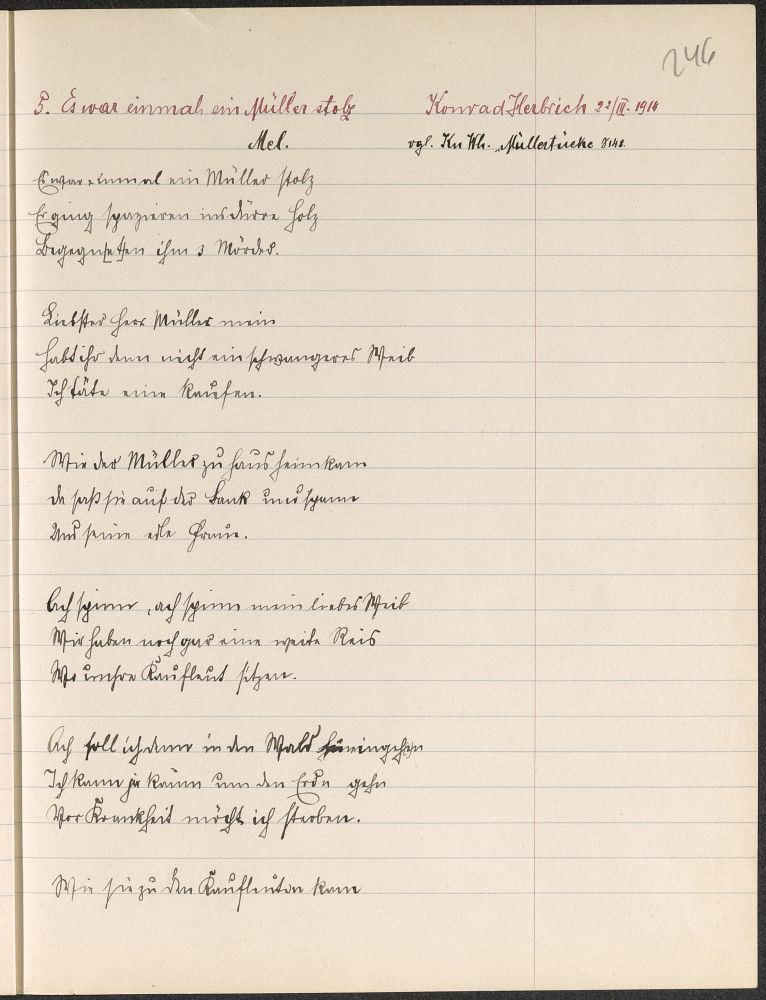 246
5. Es war einmal ein Müller stolz
Konrad Herbrich 22/III. 1914
Mel.
vgl. Kn Wh. „Müllertücke
Es war einmal ein Müller stolz
Er ging spazieren ins dürre Holz
Begegn(et)en ihm 3 Mörder.
Liebster Herr Müller mein
Habt ihr denn nicht ein schwangeres Weib
Ich täte eine kaufen.
Wie der Müller zu Haus heim kam
Da saß sie auf der Bank und spann
Und seine edle Fraue.
Ach spinn, ach spinn mein liebes Weib
Wir haben noch gar eine weite Reis
Wo unsre Kaufleut sitzen.
Ach soll ich denn in den Wald
Ich kann ja kaum um den gehn
Vor Krankheit möcht ich sterben.
Wie sie zu den Kaufleuten kam